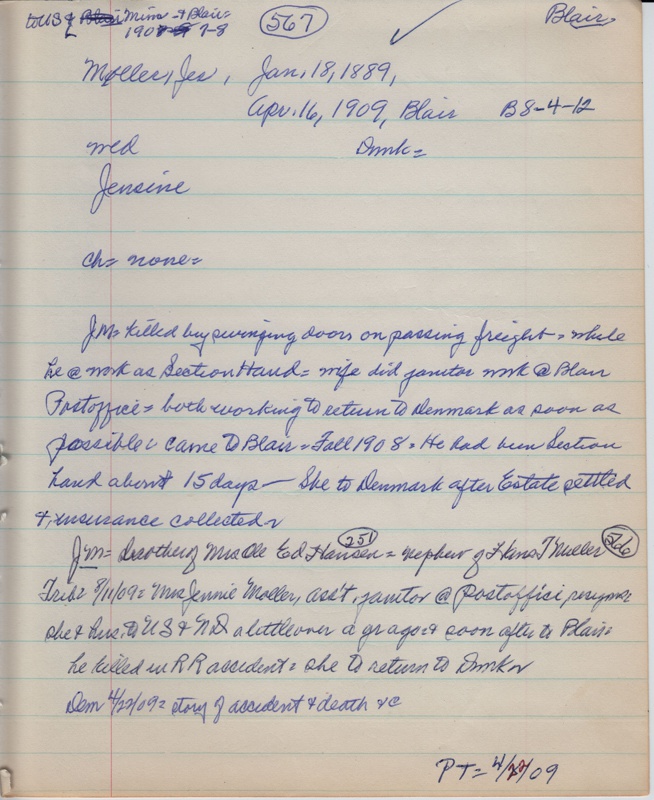 to US & Minn & Blair=
1907-8
567
Blair
Moller, Jes, Jan. 18, 1889,
Apr. 16, 1909, Blair B8-4-12
med Dmk=
Jensine
Ch= none=
JM= killed by swinging doors on passing freight= while
he @ work as Section Hand= wife did janitor work @ Blair
Postoffice= both working to return to Denmark as soon as
possible came to Blair= Fall 1908= He had been Section
hand about 15 days— She to Denmark after Estate settled
& insurance collected
JM= brother of Mrs Ole Ed Hansen 251 = nephew of Hans T Mueller 566
Trib= 8/11/09= Mrs Jennie Moller, ass't janitor @ Postoffice resigns=
she & hus. to US & a little over a yr ago= & soon after to Blair=
he killed in RR accident= she to return to Dmk
Dem 4/22/09= story of accident & death &c
PT= 4/22/09